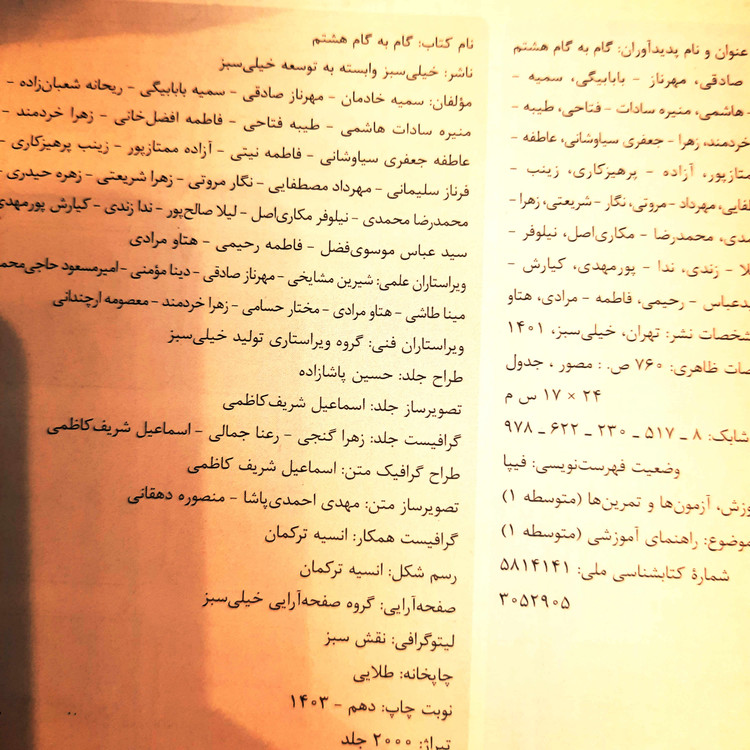 عنوان و نام پدیدآوران: گام به گام هشتم
صادقی، مهرناز - بابابیگی، سمیه -
هاشمی، منیره سادات - فتاحی، طیبه -
خردمند، زهرا - جعفری سیاوشانی، عاطفه
آزاده - پرهیزکاری، زینب -
مهرداد - مروتی، نگار - شریعتی، زهرا -
محمدرضا - مکاری‌اصل، نیلوفر -
زندی، ندا - پورمهدی، کیارش -
رحیمی، فاطمه - مرادی، هتاو
نشر: تهران، خیلی‌سبز، ۱۴۰۱
ظاهری: ۷۶۰ ص. : مصور ، جدول
۲۴ × ۱۷ س م
شابک: ۸ ـ ۵۱۷ ـ ۲۳۰ ـ ۶۲۲ ـ ۹۷۸
وضعیت فهرست‌نویسی: فیپا
آزمون‌ها و تمرین‌ها (متوسطه ۱)
موضوع: راهنمای آموزشی (متوسطه ۱)
شمارهٔ کتابشناسی ملی: ۵۸۱۴۱۴۱
۳۰۵۲۹۰۵
نام کتاب: گام به گام هشتم
ناشر: خیلی‌سبز وابسته به توسعه خیلی‌سبز
مؤلفان: سمیه خادمان - مهرناز صادقی - سمیه بابابیگی - ریحانه شعبان‌زاده -
منیره سادات هاشمی - طیبه فتاحی - فاطمه افضل‌خانی - زهرا خردمند -
عاطفه جعفری سیاوشانی - فاطمه نیتی - آزاده ممتازپور - زینب پرهیزکاری -
فرناز سلیمانی - مهرداد مصطفایی - نگار مروتی - زهرا شریعتی - زهره حیدری -
محمدرضا محمدی - نیلوفر مکاری‌اصل - لیلا صالح‌پور - ندا زندی - کیارش پورمهدی
سید عباس موسوی‌فضل - فاطمه رحیمی - هتاو مرادی
ویراستاران علمی: شیرین مشایخی - مهرناز صادقی - دینا مؤمنی - امیرمسعود
مینا طاشی - هتاو مرادی - مختار حسامی - زهرا خردمند - معصومه ارچندانی
ویراستاران فنی: گروه ویراستاری تولید خیلی‌سبز
طراح جلد: حسین پاشازاده
تصویرساز جلد: اسماعیل شریف‌کاظمی
گرافیست جلد: زهرا گنجی - رعنا جمالی - اسماعیل شریف‌کاظمی
طراح گرافیک متن: اسماعیل شریف کاظمی
تصویرساز متن: مهدی احمدی‌پاشا - منصوره دهقانی
گرافیست همکار: انسیه ترکمان
رسم شکل: انسیه ترکمان
صفحه‌آرایی: گروه صفحه‌آرایی خیلی‌سبز
لیتوگرافی: نقش سبز
چاپخانه: طلایی
نوبت چاپ: دهم - ۱۴۰۳
تیراژ: ۲۰۰۰ جلد